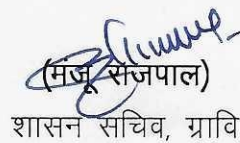 (मंजू राजपाल)
शासन सचिव, ग्रावि